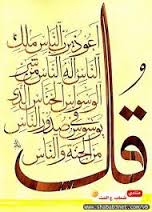 قل
أعوذ برب الناس ملك
الناس إله الناس من شر
الوسواس الخناس الذي
يوسوس في صدور الناس
من الجنة والناس
منتدى
شباب ع النت